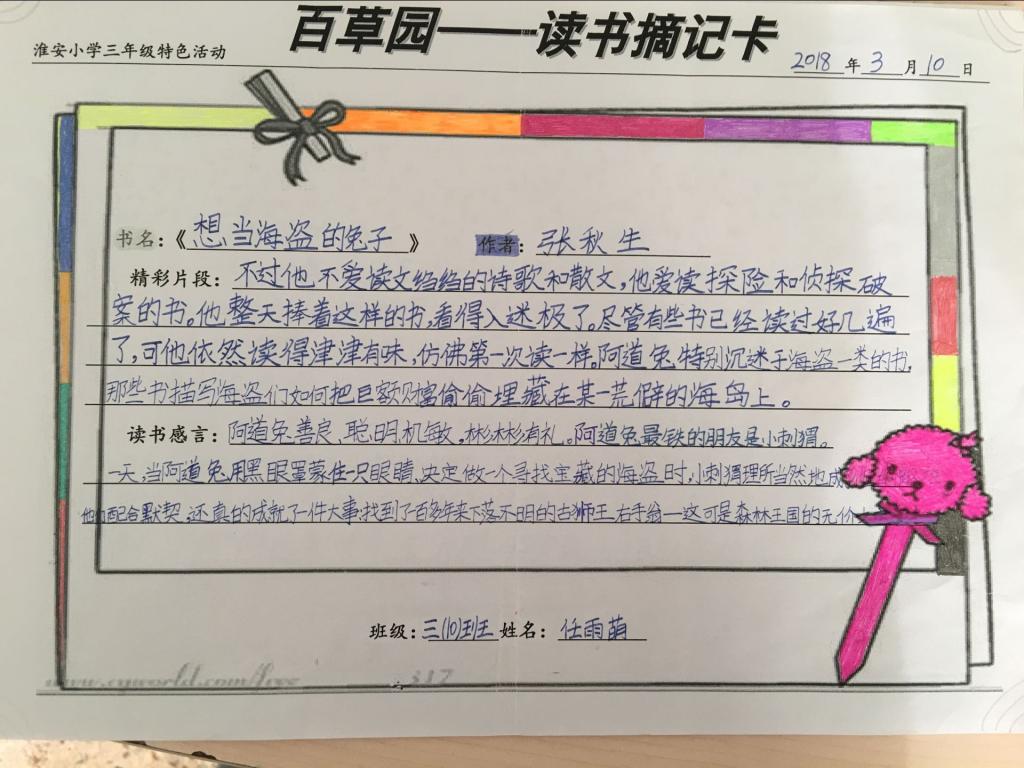 百草园——读书摘记卡
淮安小学三年级特色活动
2018 年 3 月 10 日
书名:《想当海盗的兔子》 作者: 张秋生
精彩片段: 不过他不爱读文绉绉的诗歌和散文,他爱读探险和侦探破
案的书。他整天捧着这样的书,看得入迷极了。尽管有些书已经读过好几遍
了,可他依然读得津津有味,仿佛第一次读一样。阿道兔特别沉迷于海盗一类的书,
那些书描写海盗们如何把巨额财富偷偷埋藏在某一荒僻的海岛上。
读书感言: 阿道兔善良、聪明、机敏,彬彬有礼。阿道兔最铁的朋友是小刺猬。
一天,当阿道兔用黑眼罩蒙住一只眼睛,决定做一个寻找宝藏的海盗时,小刺猬理所当然地成
他们配合默契,还真的成就了一件大事:找到了百多年来下落不明的古狮王右手翁——这可是森林王国的无价
班级: 三(10)班 姓名: 任雨萌
www.cyworld.com/free 337